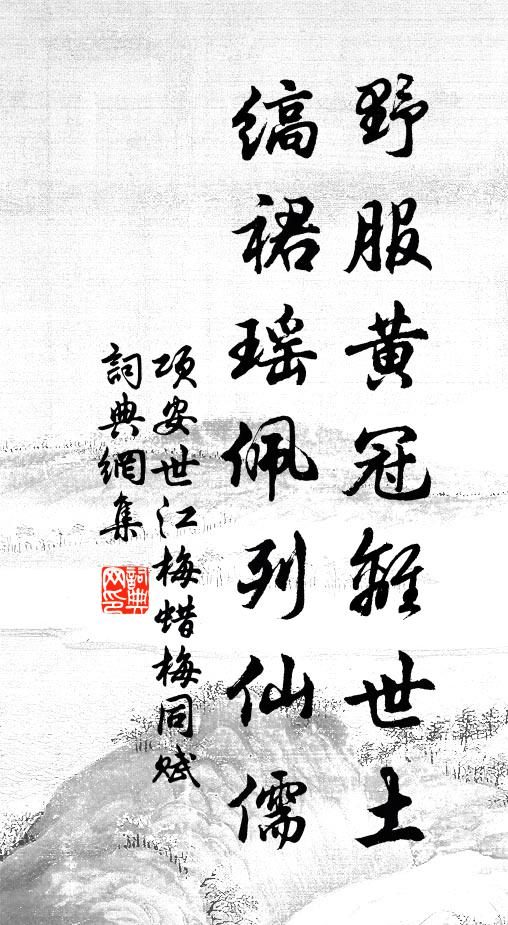 野服黄冠離世土
縞裙瑶佩列仙儒
项安世江梅蜡梅同赋
詞典網集
詞典网印